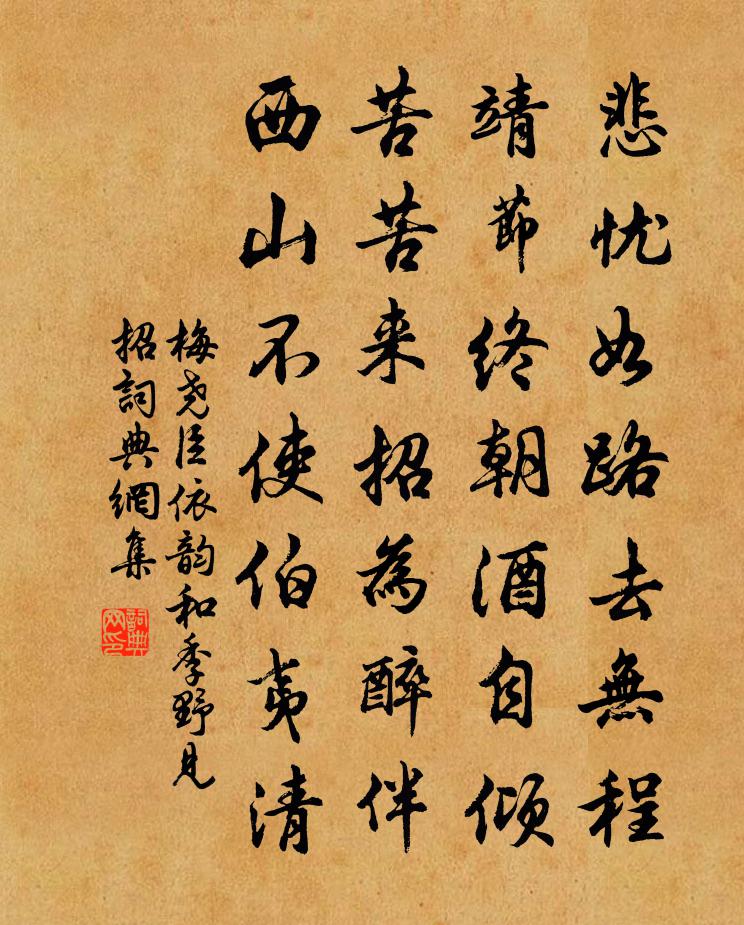 悲忧如路去無程
靖節终朝酒自倾
苦苦来招為醉伴
西山不使伯夷清
梅尧臣依韵和季野見
招詞典網集
詞典
网印